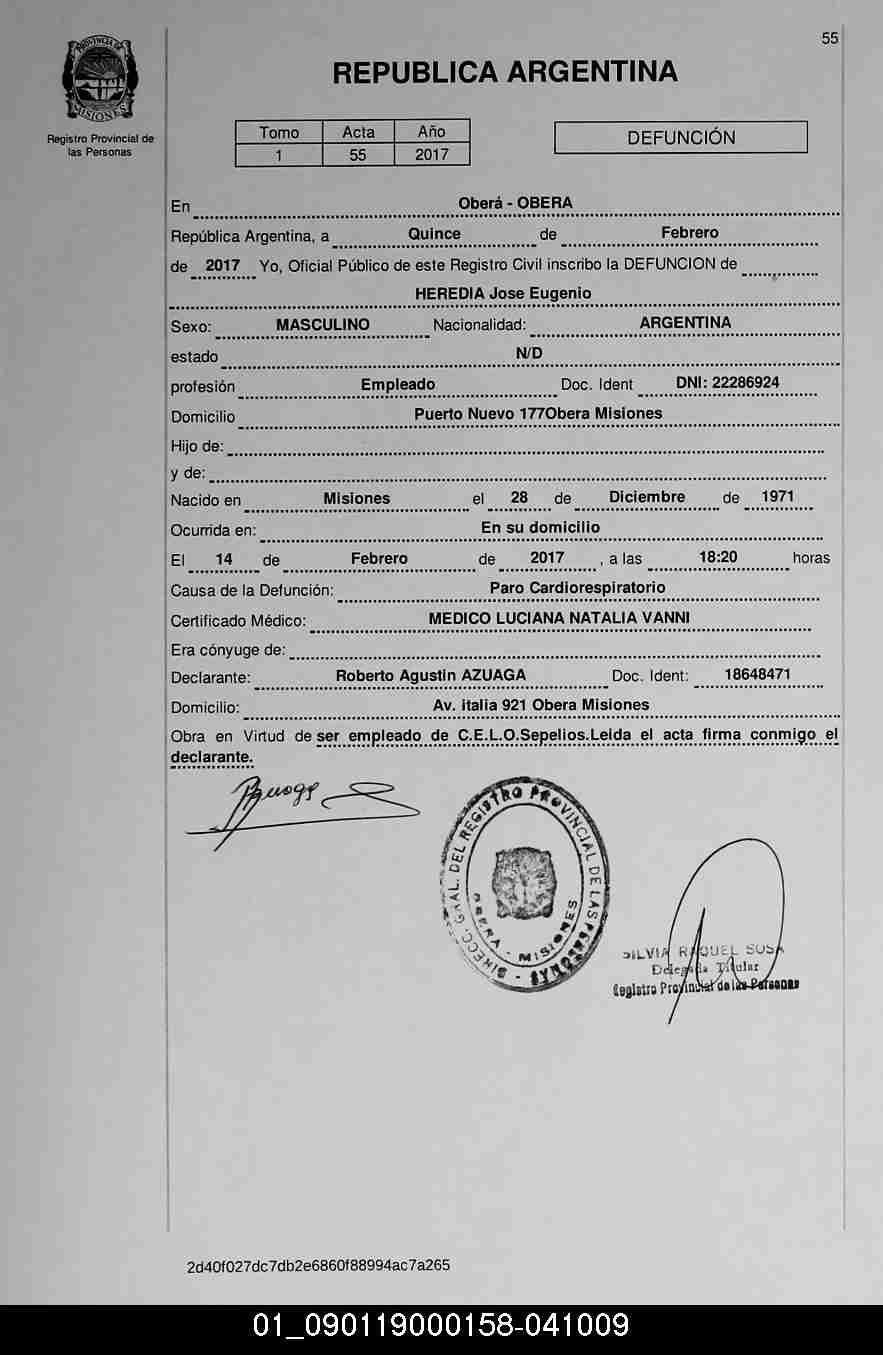 55
PROVINCIA DE MISIONES
Registro Provincial de
las Personas
REPUBLICA ARGENTINA
Tomo Acta Año
1 55 2017
DEFUNCIÓN
En Oberá - OBERA
República Argentina, a Quince de Febrero
de 2017 Yo, Oficial Público de este Registro Civil inscribo la DEFUNCION de
HEREDIA Jose Eugenio
Sexo: MASCULINO Nacionalidad: ARGENTINA
estado N/D
profesión Empleado Doc. Ident DNI: 22286924
Domicilio Puerto Nuevo 177Obera Misiones
Hijo de:
y de:
Nacido en Misiones el 28 de Diciembre de 1971
Ocurrida en: En su domicilio
El 14 de Febrero de 2017 , a las 18:20 horas
Causa de la Defunción: Paro Cardiorespiratorio
Certificado Médico: MEDICO LUCIANA NATALIA VANNI
Era cónyuge de:
Declarante: Roberto Agustin AZUAGA Doc. Ident: 18648471
Domicilio: Av. italia 921 Obera Misiones
Obra en Virtud de ser empleado de C.E.L.O.Sepelios.Leida el acta firma conmigo el
declarante.
DIRECC. GRAL. DEL REGISTRO PROVINCIAL DE LAS PERSONAS
OBERA - MISIONES
SILVIA RAQUEL SOSA
Delegada Titular
Registro Provincial de las Personas
2d40f027dc7db2e6860f88994ac7a265
01_090119000158-041009